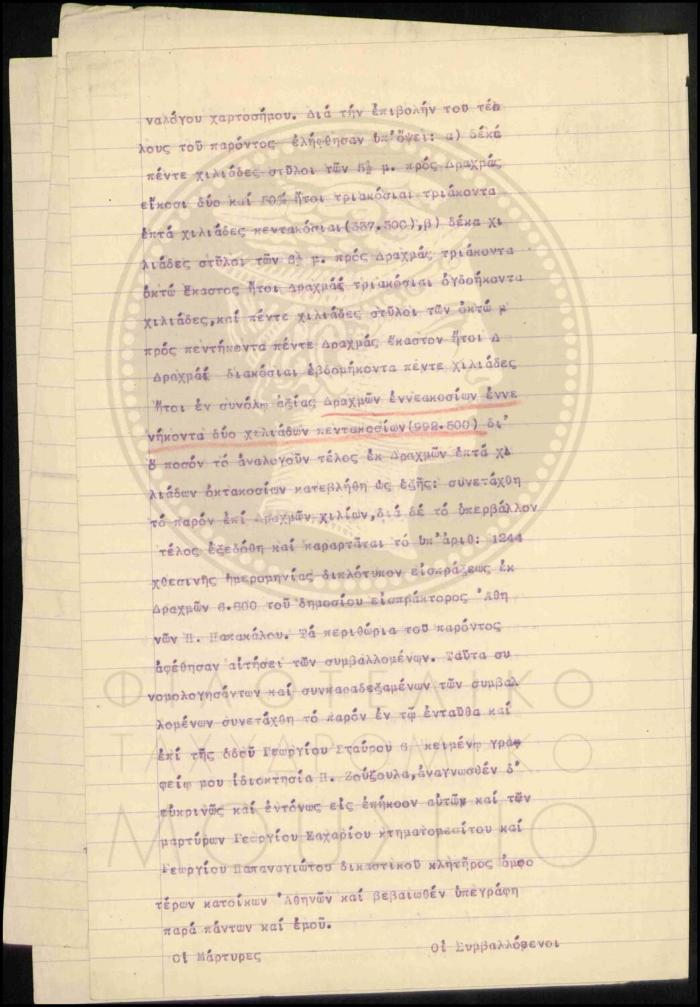 ναλόγου χαρτοσήμου. Διά τήν ἐπιβολήν τοῦ τέ
λους τοῦ παρόντος ἐλήφθησαν ὑπ'ὄψει: α) δέκα
πέντε χιλιάδες στῦλοι τῶν 5½ μ. πρός Δραχμάς
εἴκοσι δύο καί 50% ἤτοι τριακόσιαι τριάκοντα
ἑπτά χιλιάδες πεντακόσιαι(337.500),β) δέκα χι
λιάδες στῦλοι τῶν 6½ μ. πρός Δραχμάς τριάκοντα
ὀκτώ ἕκαστος ἤτοι Δραχμάς τριακόσιαι ὀγδοήκοντα
χιλιάδες,καί πέντε χιλιάδες στῦλοι τῶν ὀκτώ μ
πρός πεντήκοντα πέντε Δραχμάς ἕκαστον ἤτοι Δ
Δραχμάς διακόσιαι ἑβδομήκοντα πέντε χιλιάδες
ἤτοι ἐν συνόλῳ ἀξίας Δραχμῶν ἐννεακοσίων ἐννε
νήκοντα δύο χιλιάδων πεντακοσίων(992.500) δι'
ὅ ποσόν τό ἀναλογοῦν τέλος ἐκ Δραχμῶν ἑπτά χι
λιάδων ὀκτακοσίων κατεβλήθη ὡς ἑξῆς: συνετάχθη
τό παρόν ἐπί Δραχμῶν χιλίων,διά δέ τό ὑπερβάλλον
τέλος ἐξεδόθη καί παραρτᾶται τό ὑπ'ἀριθ: 1244
χθεσινῆς ἡμερομηνίας διπλότυπον εἰσπράξεως ἐκ
Δραχμῶν 6.800 τοῦ δημοσίου εἰσπράκτορος Ἀθη
νῶν Π. Παπακάλου. Τά περιθώρια τοῦ παρόντος
ἀφέθησαν αἰτήσει τῶν συμβαλλομένων. Ταῦτα συ
νομολογησάντων καί συνπαραδεξαμένων τῶν συμβαλ
λομένων συνετάχθη τό παρόν ἐν τῷ ἐνταῦθα καί
ἐπί τῆς ὁδοῦ Γεωργίου Σταύρου 6 κειμένῳ γραφ
φείῳ μου ἰδιοκτησία Π. Ζούζουλα,ἀναγνωσθέν δ'
εὐκρινῶς καί ἐντόνως εἰς ἐπήκοον αὐτῶν καί τῶν
μαρτύρων Γεωργίου Ζαχαρίου κτηματομεσίτου καί
Γεωργίου Παπαναγιώτου δικαστικοῦ κλητῆρος ἀμφο
τέρων κατοίκων Ἀθηνῶν καί βεβαιωθέν ὑπεγράφη
παρά πάντων καί ἐμοῦ.
Οἱ Μάρτυρες Οἱ Συμβαλλόμενοι
ΦΙΛΟΤΕΛΙΚΟ
ΤΑΧΥΔΡΟΜΙΚΟ
ΜΟΥΣΕΙΟ